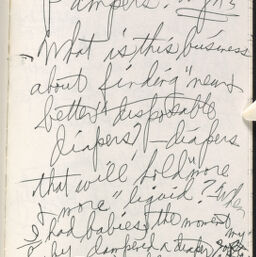 Pampers?
What is this business
about finding "new &
better" disposable
diapers? — diapers
that will hold "more
& more" liquid? When
I had babies, the moment my
baby dampened a diaper,